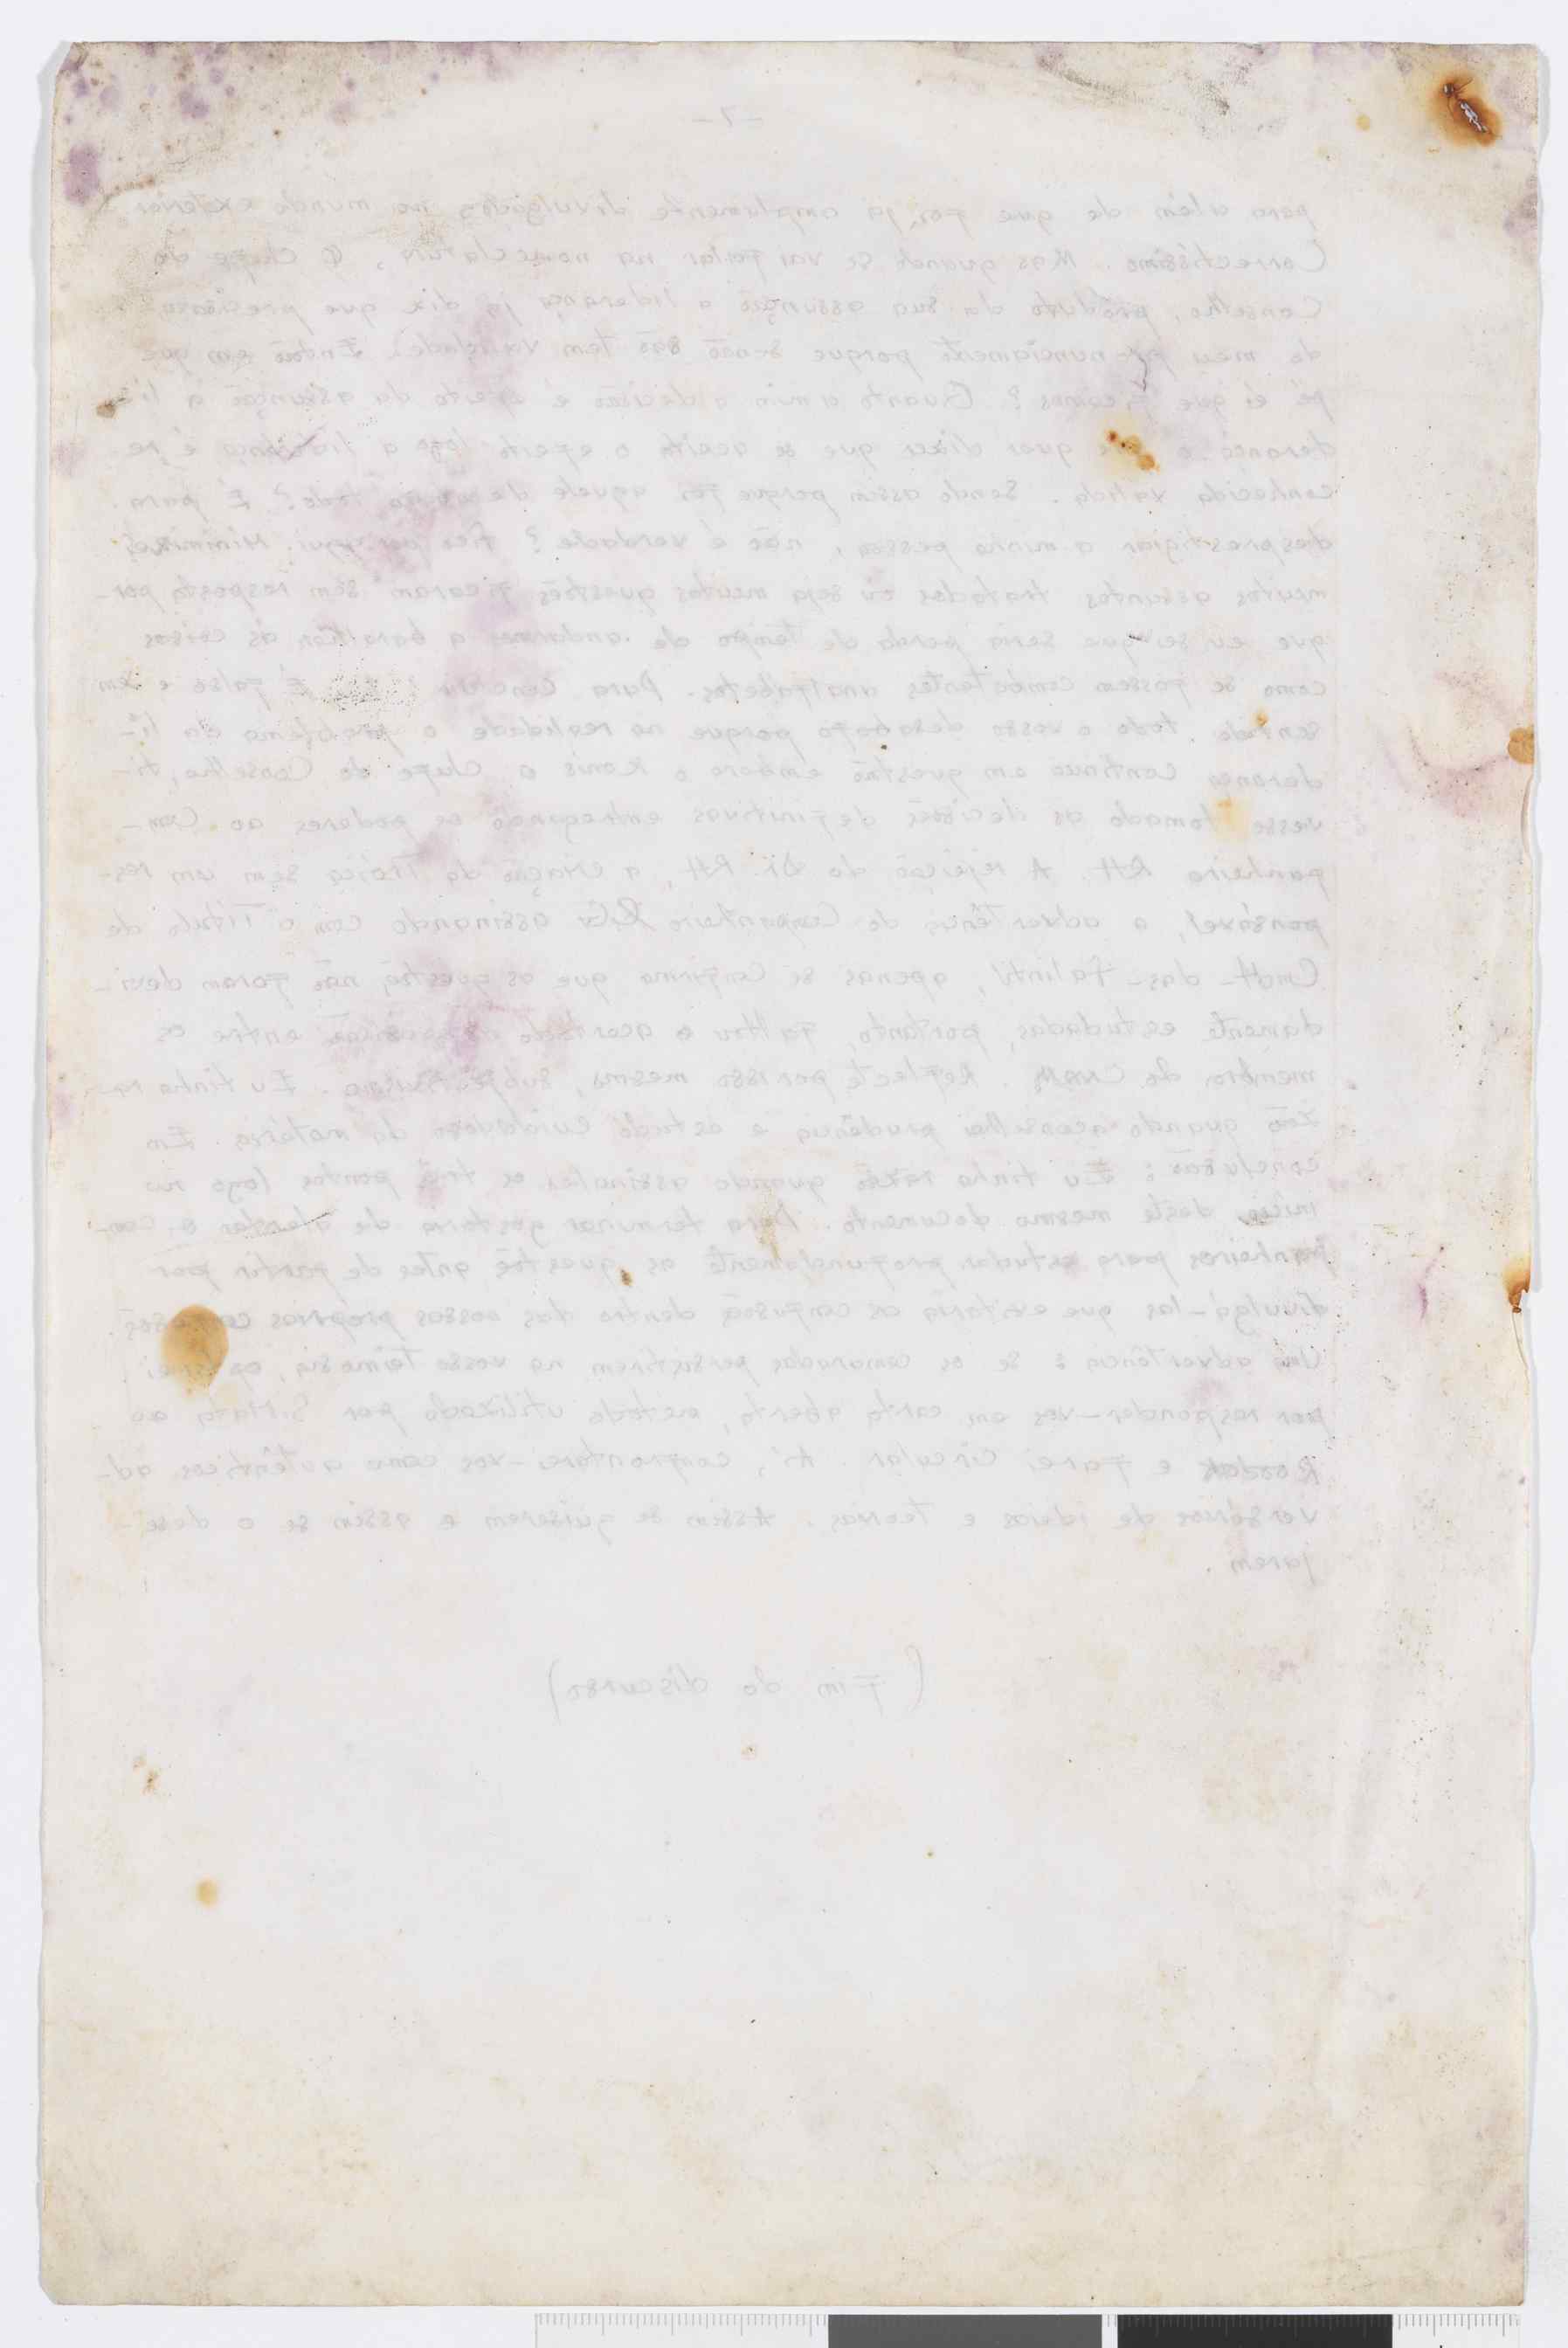 -7-
para além de que foi já amplamente divulgados no mundo exterior.
Correctíssimo. Mas quando se vai falar na nomeclatura, O Chefe do
Conselho, produto da sua assunção a liderança já diz que precisava
do meu pronunciamento porque senão não tem validade. Então em que
pé é que ficamos? Quanto a mim a decisão é efeito da assunção à li-
derança e quer dizer que se aceita o efeito logo a liderança é re-
conhecida válida. Sendo assim porque foi aquele todo? É para
desprestigiar a minha pessoa, não é verdade? Fico por aqui.
muitos assuntos tratados ou seja muitas questões ficaram sem resposta por-
que eu sei que seria perda de tempo de andarmos a as coisas
como se fossem combatentes analfabetos. Para É falso e sem
sentido todo o vosso desabafo porque na realidade o problema da li-
derança continua em questão embora o Konis o Chefe do Conselho, ti-
vesse tomado as decisões definitivas entregando os poderes ao Com-
panheiro RH. A rejeição do Dr. RH, a criação da Troica sem um res-
ponsável, a advertência do Companheiro assinando com o Título de
Cmdt-das-Falintil, apenas se confirma que as questões não foram devi-
damente estudadas, portanto, faltou o acertado entre os
membros do CNRM. Reflecte por isso mesmo, . Eu tinha ra-
zão quando aconselhei prudência e estudo cuidadoso da matéria. Em
conclusão: Eu tinha razão quando assinalei os três pontos logo no
início deste mesmo documento. Para terminar gostaria de alertar os com-
panheiros para estudar profundamente as questões antes de partir por
divulgá-las que evitaria as confusões dentro das vossas próprias
Uma advertência: se os camaradas persistirem na vossa teimosia,
por responder-vos em carta aberta, método utilizado por ao
e farei circular. Aí, confrontarei-vos como autênticos ad-
versários de ideias e teorias. Assim se quiserem e assim se o dese-
jarem.
(Fim do discurso)